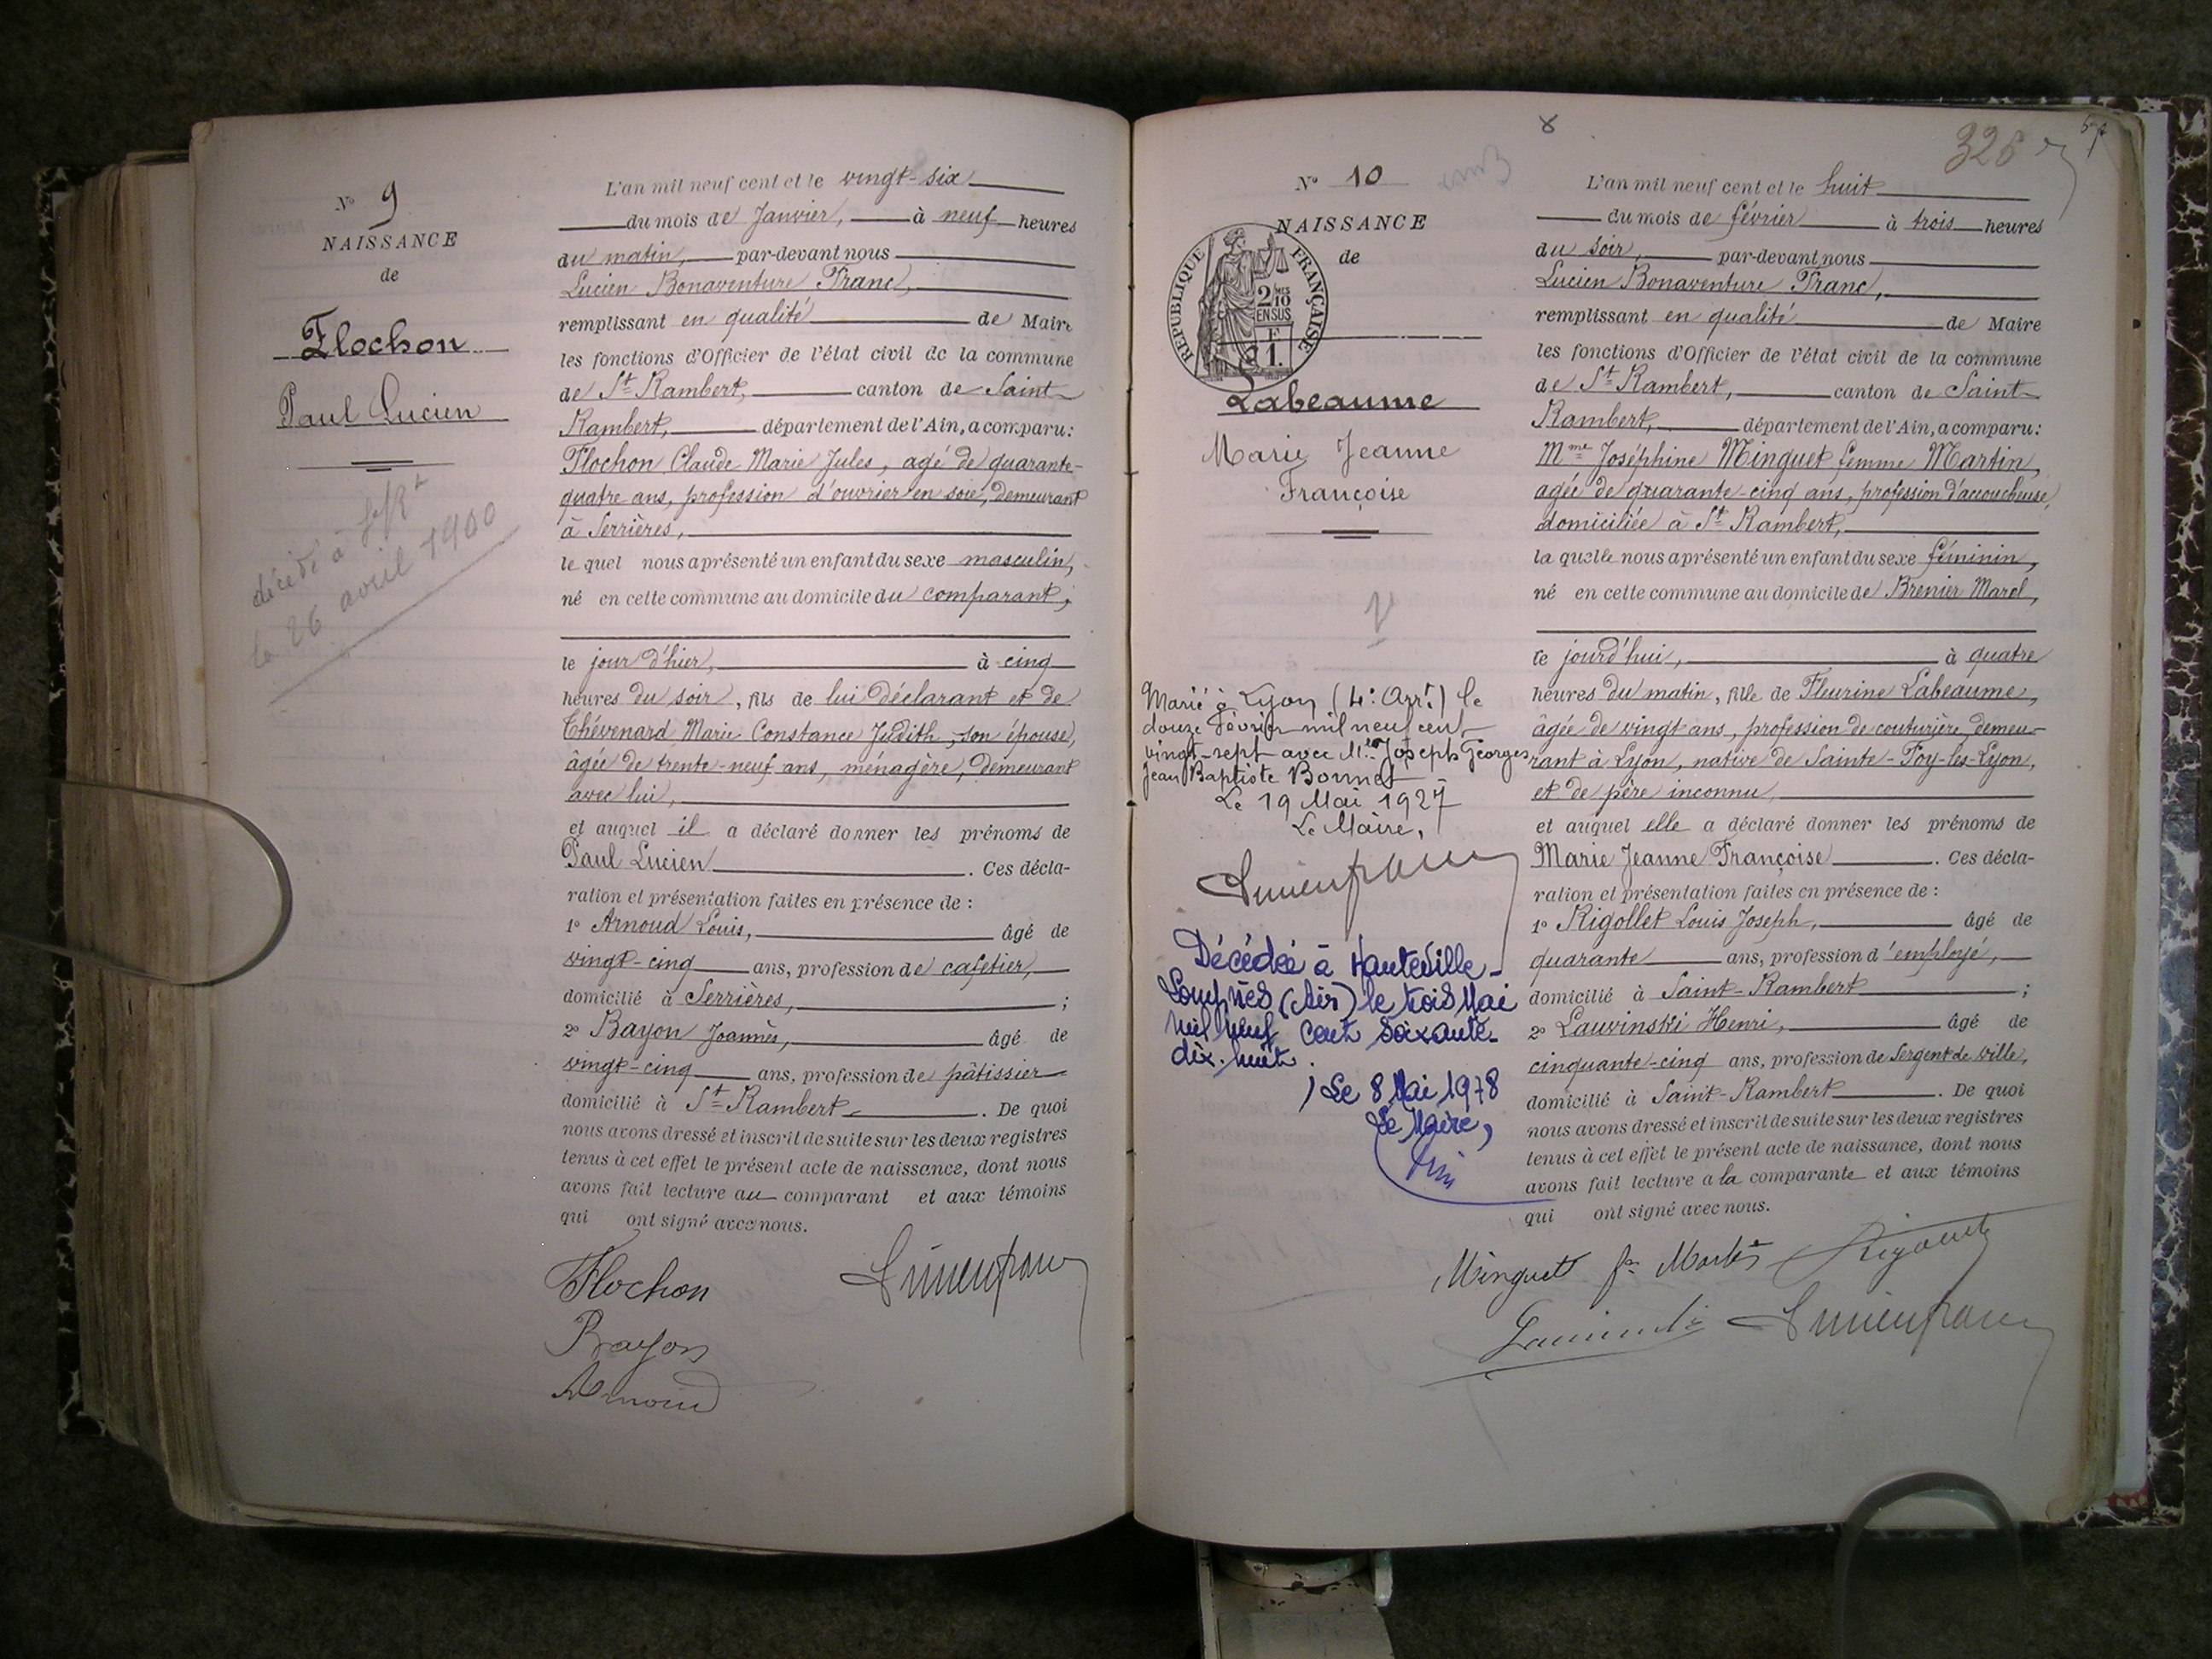 N° 9
NAISSANCE
de
Flochon
Paul Lucien
décédé à St Rt
le 26 avril 1900
L'an mil neuf cent et le vingt-six
du mois de Janvier, à neuf heures
du matin, par-devant nous
Lucien Bonaventure Franc,
remplissant en qualité de Maire
les fonctions d'Officier de l'état civil de la commune
de St Rambert, canton de Saint
Rambert, département de l'Ain, a comparu:
Flochon Claude Marie Jules, agé de quarante-
quatre ans, profession d'ouvrier en soie, demeurant
à Serrières,
le quel nous a présenté un enfant du sexe masculin,
né en cette commune au domicile du comparant,
le jour d'hier, à cinq
heures du soir, fils de lui déclarant et de
Chévenard Marie Constance Judith, son épouse,
âgée de trente-neuf ans, ménagère, demeurant
avec lui,
et auquel il a déclaré donner les prénoms de
Paul Lucien. Ces décla-
ration et présentation faites en présence de :
1° Arnoud Louis, âgé de
vingt-cinq ans, profession de cafetier,
domicilié à Serrières, ;
2° Bayon Joannès, âgé de
vingt-cinq ans, profession de pâtissier
domicilié à St Rambert. De quoi
nous avons dressé et inscrit de suite sur les deux registres
tenus à cet effet le présent acte de naissance, dont nous
avons fait lecture au comparant et aux témoins
qui ont signé avec nous.
Flochon Lucien franc
Bayon
Arnoud
8
326
N° 10
NAISSANCE
de
REPUBLIQUE FRANÇAISE
2 MES
10
EN SUS
F
1.
Labeaume
Marie Jeanne
Françoise
Marié à Lyon (4e Arrt) le
douze février mil neuf cent
vingt-sept avec Mr Joseph Georges
Jean Baptiste Bonnet
Le 19 Mai 1927
Le Maire,
Lucien franc
Décédée à Hauteville-
Lompnès (Ain) le trois Mai
mil neuf cent soixante-
dix-huit.
Le 8 Mai 1978
Le Maire,
L'an mil neuf cent et le huit
du mois de février à trois heures
du soir, par-devant nous
Lucien Bonaventure Franc,
remplissant en qualité de Maire
les fonctions d'Officier de l'état civil de la commune
de St Rambert, canton de Saint
Rambert, département de l'Ain, a comparu:
Mme Joséphine Minguet femme Martin,
agée de quarante-cinq ans, profession d'accoucheuse,
domiciliée à St Rambert,
la quelle nous a présenté un enfant du sexe féminin,
né en cette commune au domicile de Brenier Marcl,
le jourd'hui, à quatre
heures du matin, fille de Fleurine Labeaume,
âgée de vingt ans, profession de couturière, demeu-
rant à Lyon, native de Sainte-Foy-lès-Lyon,
et de père inconnu,
et auquel elle a déclaré donner les prénoms de
Marie Jeanne Françoise. Ces décla-
ration et présentation faites en présence de :
1° Rigollet Louis Joseph, âgé de
quarante ans, profession d'employé,
domicilié à Saint-Rambert ;
2° Lauvinski Henri, âgé de
cinquante-cinq ans, profession de sergent de ville,
domicilié à Saint-Rambert. De quoi
nous avons dressé et inscrit de suite sur les deux registres
tenus à cet effet le présent acte de naissance, dont nous
avons fait lecture a la comparante et aux témoins
qui ont signé avec nous.
Minguet fe Martin
Lucien franc